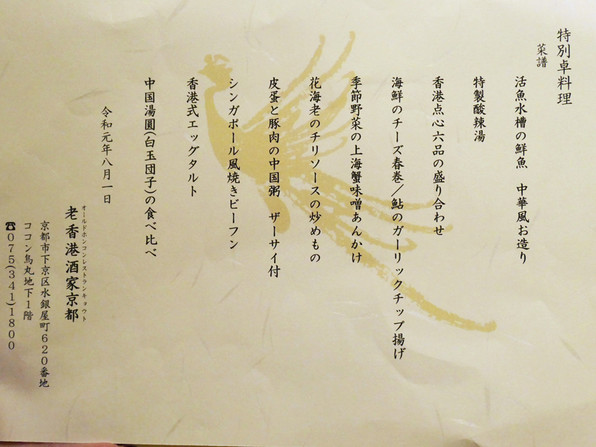 特別卓料理
菜譜
活魚水槽の鮮魚　中華風お造り
特製酸辣湯
香港点心六品の盛り合わせ
海鮮のチーズ春巻／鮎のガーリックチップ揚げ
季節野菜の上海蟹味噌あんかけ
花海老のチリソースの炒めもの
皮蛋と豚肉の中国粥　ザーサイ付
シンガポール風焼きビーフン
香港式エッグタルト
中国湯圓(白玉団子)の食べ比べ
令和元年八月一日
オールドホンコンレストランキョウト
老香港酒家京都
京都市下京区水銀屋町620番地
ココン烏丸地下1階
☎075(341)1800